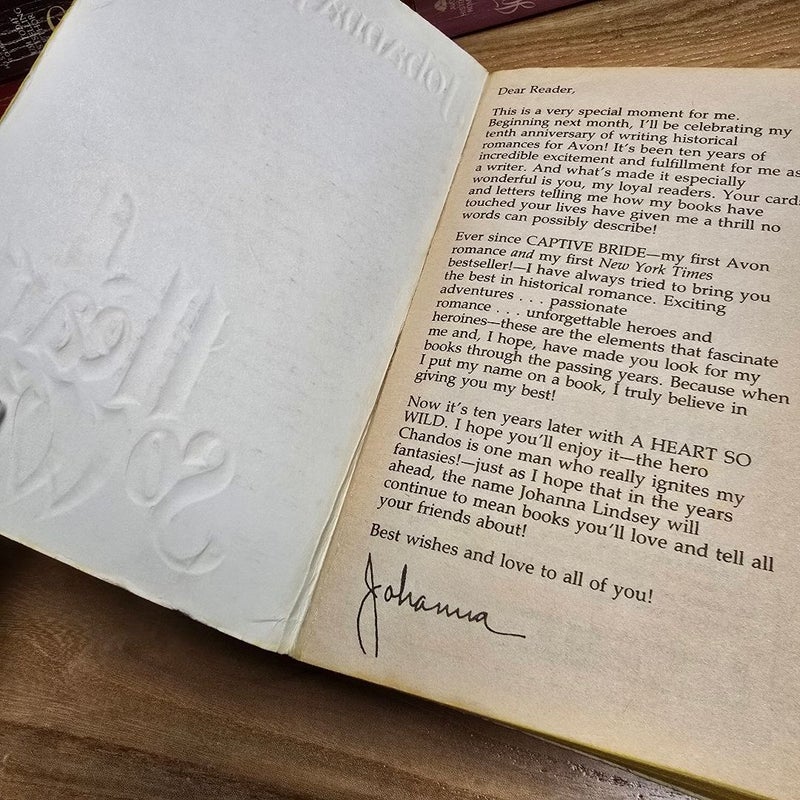 Johanna
A
Heart
So
Wild
Dear Reader,
This is a very special moment for me.
Beginning next month, I'll be celebrating my
tenth anniversary of writing historical
romances for Avon! It's been ten years of
incredible excitement and fulfillment for me as
a writer. And what's made it especially
wonderful is you, my loyal readers. Your cards
and letters telling me how my books have
touched your lives have given me a thrill no
words can possibly describe!
Ever since CAPTIVE BRIDE—my first Avon
romance and my first New York Times
bestseller!—I have always tried to bring you
the best in historical romance. Exciting
adventures . . . passionate
romance . . . unforgettable heroes and
heroines—these are the elements that fascinate
me and, I hope, have made you look for my
books through the passing years. Because when
I put my name on a book, I truly believe in
giving you my best!
Now it's ten years later with A HEART SO
WILD. I hope you'll enjoy it—the hero
Chandos is one man who really ignites my
fantasies!—just as I hope that in the years
ahead, the name Johanna Lindsey will
continue to mean books you'll love and tell all
your friends about!
Best wishes and love to all of you!
Johanna